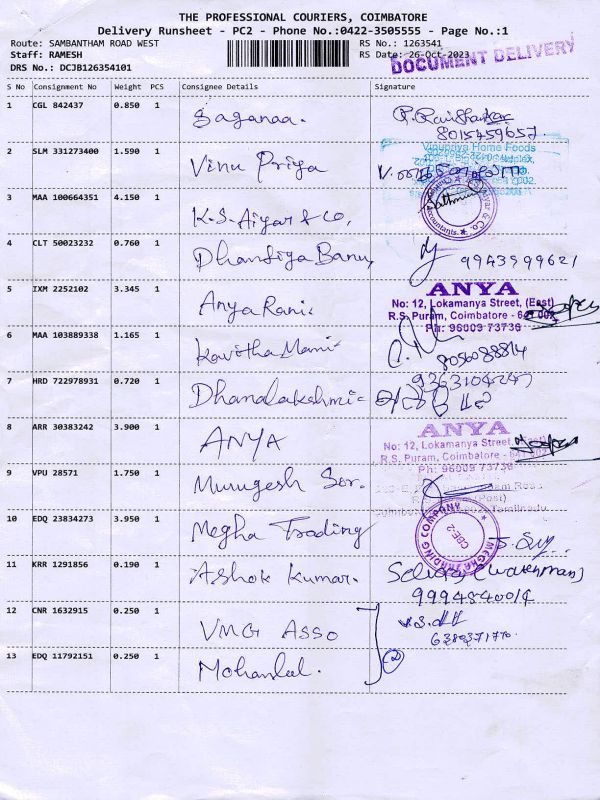 THE PROFESSIONAL COURIERS, COIMBATORE
Delivery Runsheet - PC2 - Phone No.:0422-3505555 - Page No.:1
Route: SAMBANTHAM ROAD WEST RS No.: 1263541
Staff: RAMESH RS Date: 26-Oct-2023
DRS No.: DCJB126354101
DOCUMENT DELIVERY
S No Consignment No Weight PCS Consignee Details Signature
1 CGL 842437 0.850 1 Saganaa.
8015459657.
2 SLM 331273400 1.590 1 Vinu Priya
Vinupriya Home Foods
3 MAA 100664351 4.150 1 K.S. Aiyar & Co,
4 CLT 50023232 0.760 1 Dhandiya Banu,
9943599621
5 IXM 2252102 3.345 1 Anya Rani-
ANYA
No: 12, Lokamanya Street, (East)
R.S. Puram, Coimbatore - 641 002
Ph: 96009 73736
6 MAA 103889338 1.165 1 Kavitha Mani-
8056088814
7 HRD 722978931 0.720 1 Dhanalakshmi-
9363104247
8 ARR 30383242 3.900 1 ANYA
ANYA
No: 12, Lokamanya Street, (East)
R.S. Puram, Coimbatore -
Ph: 96009 73736
9 VPU 28571 1.750 1 Murugesh Ser.
10 EDQ 23834273 3.950 1 Megha Trading
MEGHA TRADING COMPANY
CBE-2
11 KRR 1291856 0.190 1 Ashok Kumar.
(Watchman)
9994840014
12 CNR 1632915 0.250 1 VMG ASSO
13 EDQ 11792151 0.250 1 Mohanlal.
2